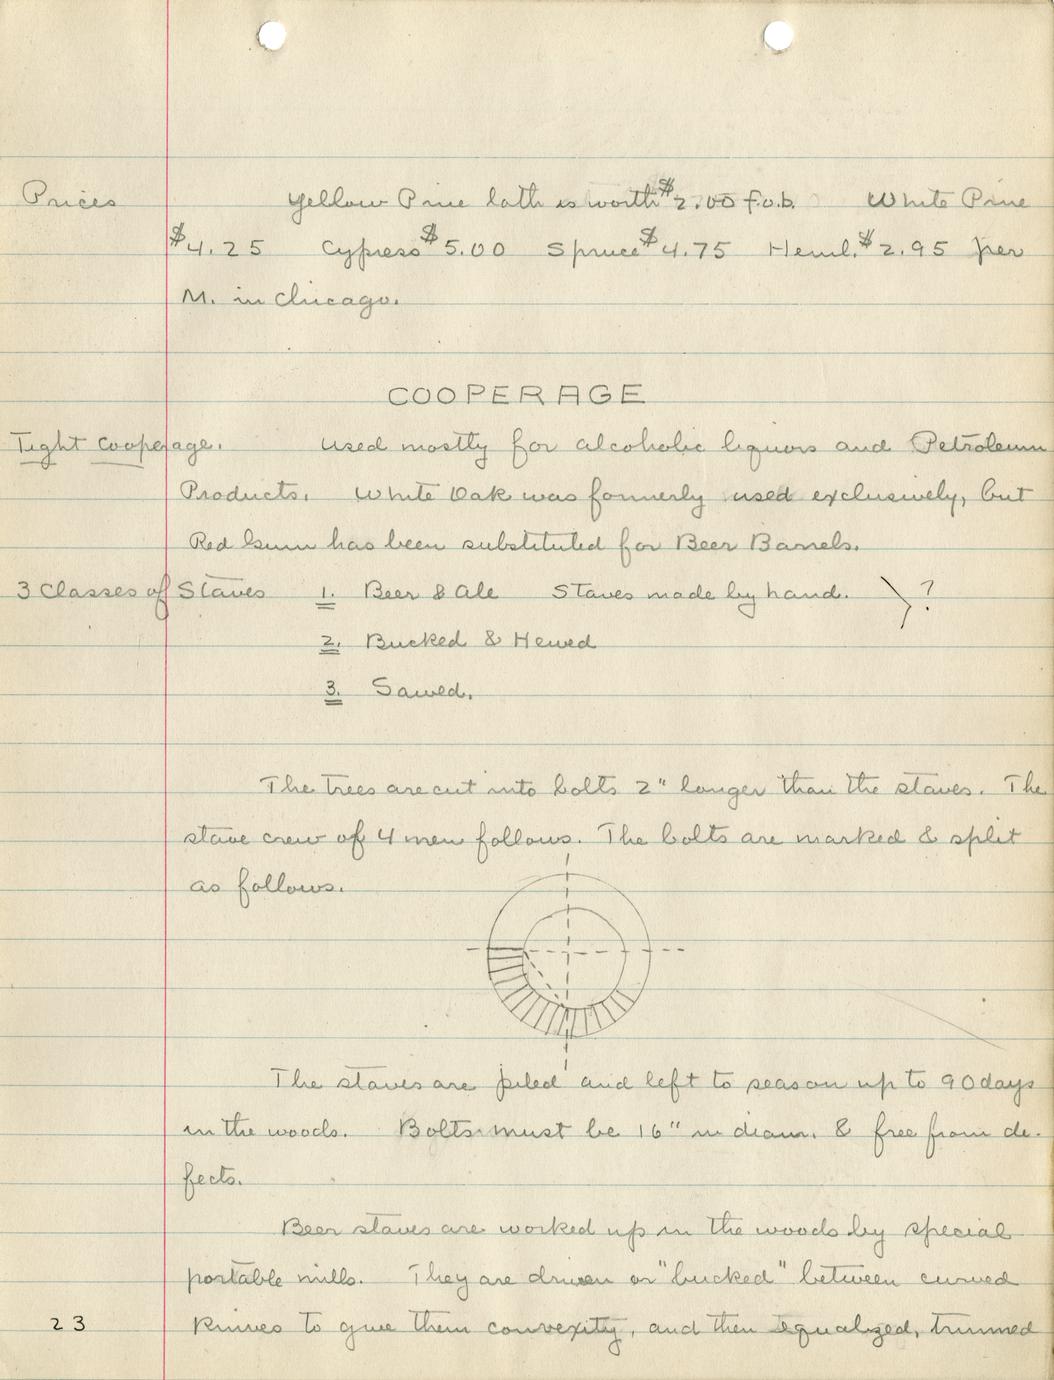 Prices Yellow Pine lath is worth $2.00 f.o.b. White Pine
$4.25 Cypress $5.00 Spruce $4.75 Heml. $2.95 per
M. in Chicago.
COOPERAGE
Tight cooperage. Used mostly for alcoholic liquors and Petroleum
Products. White Oak was formerly used exclusively, but
Red Gum has been substituted for Beer Barrels.
3 Classes of Staves 1. Beer & Ale Staves made by hand. ?
2. Bucked & Hewed
3. Sawed.
The trees are cut into bolts 2" longer than the staves. The
stave crew of 4 men follows. The bolts are marked & split
as follows.
The staves are piled and left to season up to 90 days
in the woods. Bolts must be 16" in diam. & free from de-
fects.
Beer staves are worked up in the woods by special
portable mills. They are driven or "bucked" between curved
knives to give them convexity, and then equalized, trimmed
23